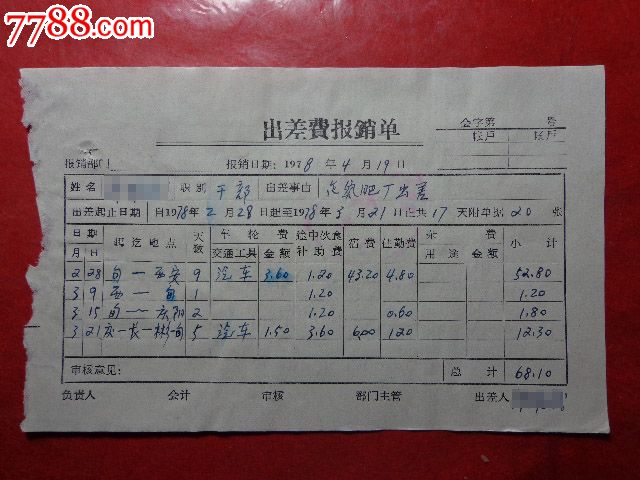 7788.com
出差費报銷单
会字第 号
帐戶 帐戶
报销部门 报销日期：1978年4月19日
姓名 职别 干部 出差事由 氮肥厂出差
出差起止日期 自1978年2月28日起至1978年3月21日止共17天附单据20张
日期 起讫地点 天数 车轮费 途中伙食补助费 宿费 住勤费 杂费 小计
月 日 交通工具 金额 用途 金额
2 28 旬一西安 9 汽车 3.60 1.20 43.20 4.80 52.80
3 9 西一旬 1 1.20 1.20
3 15 旬一庆阳 2 1.20 0.60 1.80
3 21 庆一长一彬一旬 5 汽车 1.50 3.60 6.00 1.20 12.30
审核意见： 总计 68.10
负责人 会计 审核 部门主管 出差人